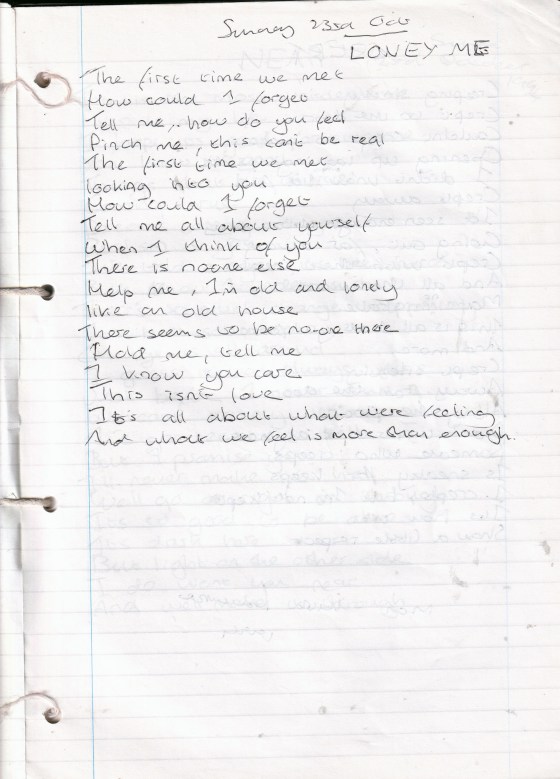 Sunday 23rd Oct
LONEY ME
The first time we met
How could I forget
Tell me,. how do you feel
Pinch me, this cant be real
The first time we met
looking into you
How could I forget
Tell me all about youself
When I think of you
There is no-one else
Help me, I'm old and lonely
like an old house
There seems to be no-one there
Hold me, tell me
I know you care
This isnt love
It's all about what were feeling
And what we feel is more than enough.